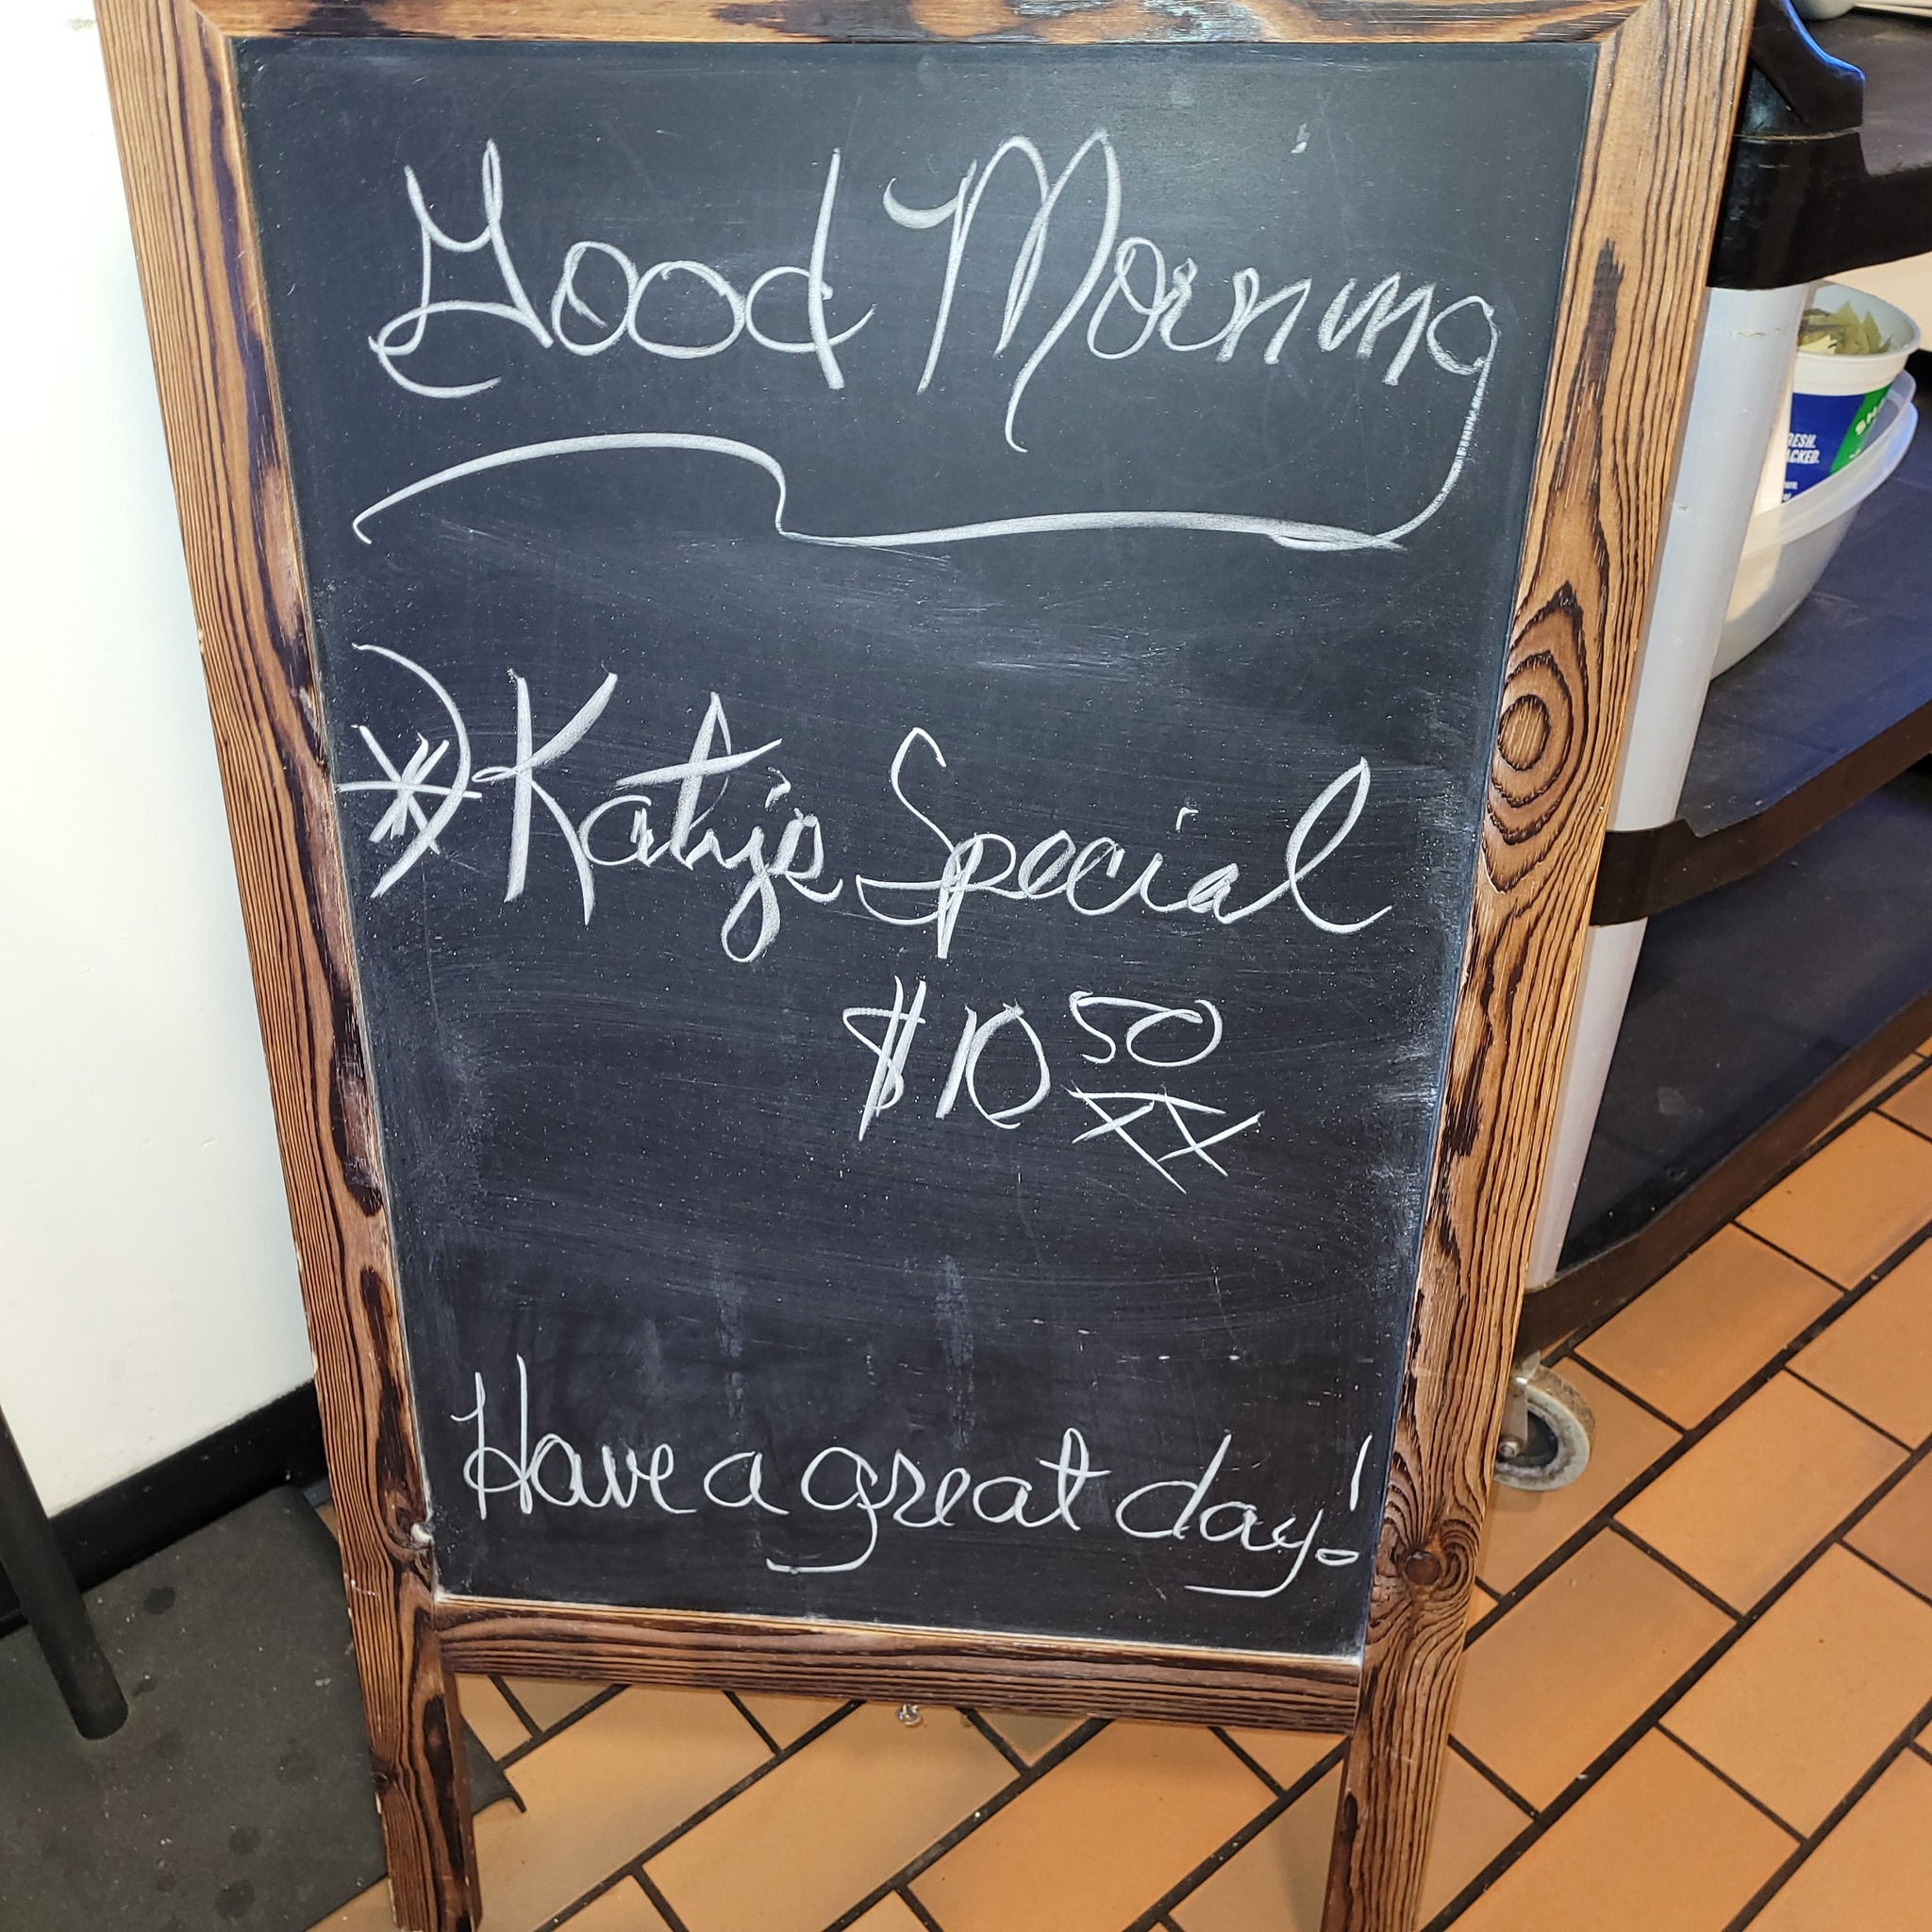 Good Morning
* Katy's Special
$10 50
XX
Have a great day!
RESH.
ACKED.